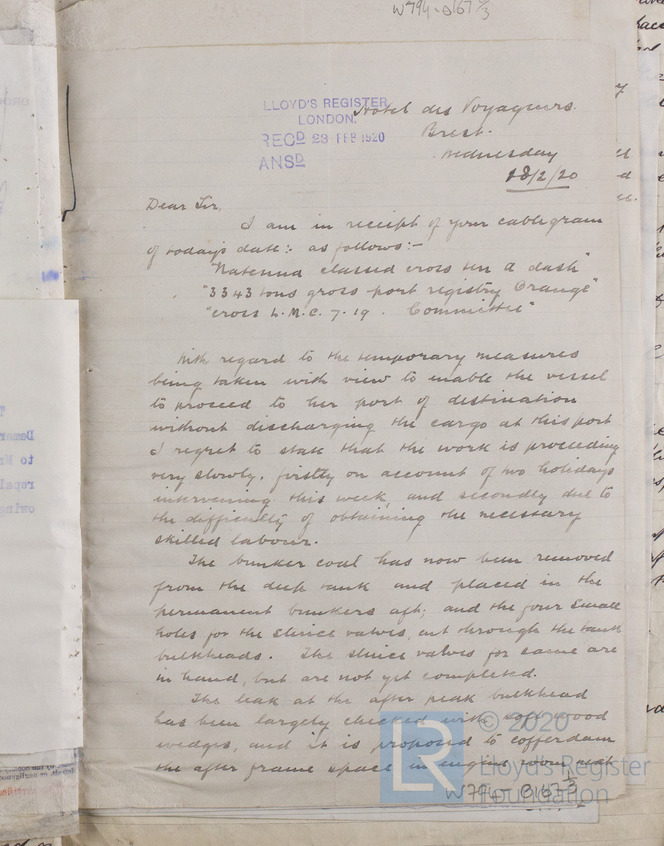 W794-0167 1/3
LLOYD'S REGISTER,
LONDON.
REC'D 23 FEB 1920
ANS'D
Hotel des Voyageurs.
Brest.
Wednesday
18/2/20
Dear Sir,
I am in receipt of your cablegram
of today's date:- as follows:-
"Natenna classed cross ten A dash"
"3343 tons gross port registry Orange"
"cross L.M.C. 7.19. Committee"
With regard to the temporary measures
being taken with view to enable the vessel
to proceed to her port of destination
without discharging the cargo at this port
I regret to state that the work is proceeding
very slowly, firstly on account of two holidays
intervening this week, and secondly due to
the difficulty of obtaining the necessary
skilled labour.
The bunker coal has now been removed
from the deep tank and placed in the
permanent bunkers aft; and the four small
holes for the sluice valves, cut through the tank
bulkheads. The sluice valves for same are
in hand, but are not yet completed.
The leak at the after peak bulkhead
has been largely checked with soft wood
wedges, and it is proposed to cofferdam
the after frame space in engine room with
W794-0167 1/3
© 2020
Lloyd's Register
Foundation
LR